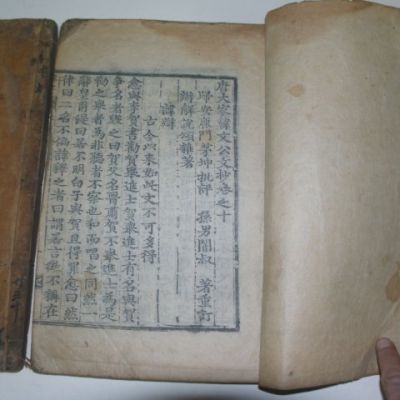 唐大家韓文公文抄卷之十
歸安鹿門茅坤批評 孫男闇叔 著重訂
辯解說頌雜著
諱辯
古今以來如此文不可多得
愈與李賀書勸賀舉進士賀舉進士有名與賀
爭名者毀之曰賀父名晉肅賀不舉進士為是
勸之舉者為非聽者不察也和而唱之同然一
辭皇甫湜曰若不明白子與賀且得罪愈曰然
律曰二名不偏諱釋之者曰謂若言徵不稱在